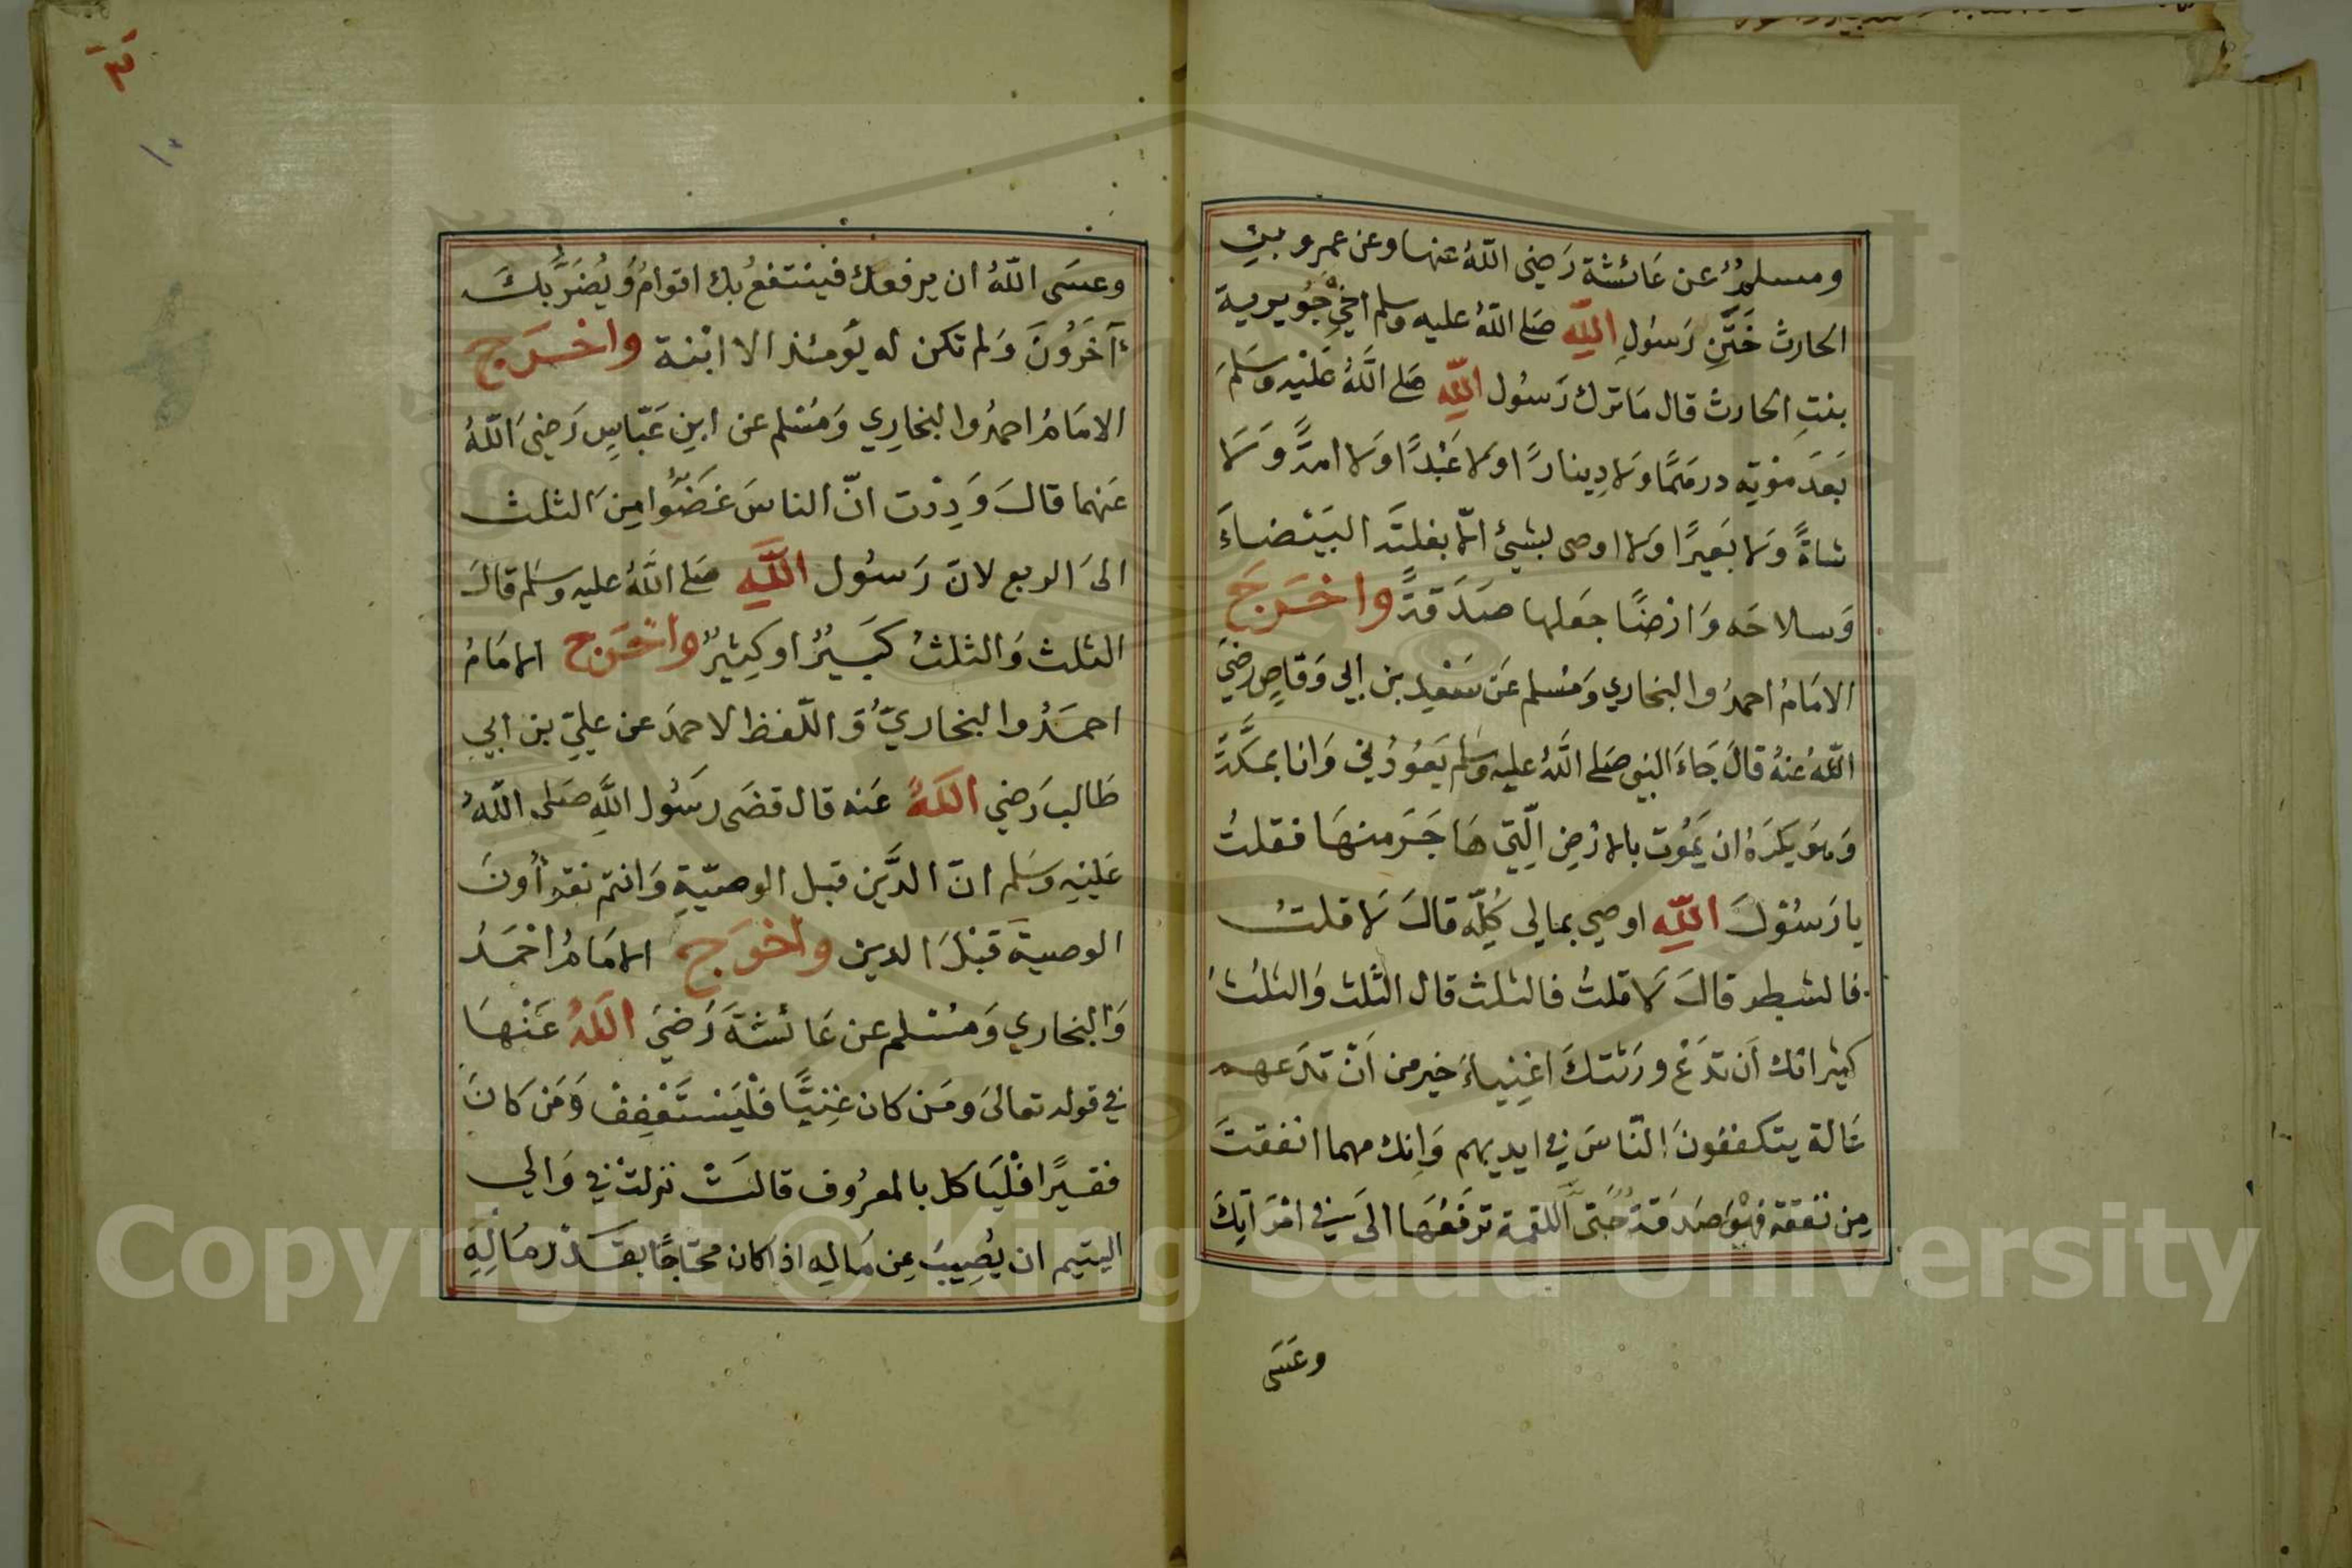 ومسلمٌ عن عَائشة رَضي اللّهُ عنها وعن عمرو بن
الحارث خَتَنِ رَسُولِ اللّهِ صَلى اللّهُ عليه وسلم اخي جُويرية
بنتِ الحارث قال مَا ترك رَسُول اللّهِ صَلى اللّهُ عَليْه وسَلمَ
بَعَدَ مَوْتِهِ درهَمًا وَلا دِينارًا وَلا عَبْدًا وَلا امةً وَلا
شاةً وَلا بَعيرًا وَلا اوصى بشيئ الّا بغلتَه البَيْضاءَ
وَسلاحَه وَارْضًا جَعَلها صَدَقةً واخرَجَ
الامَامُ احمدُ والبخاري وَمُسلم عَن سَعْيدِ بن ابي وَقاصٍ رضيَ
اللّهُ عنهُ قالَ جَاءَ النبي صَلى اللّهُ عليه وسَلم يَعُودُني وَانا بمكَّةَ
وَهوَ يَكرَهُ ان يَمُوت بالارْضِ الّتِي هَاجَرَ منهَا فقلتُ
يا رَسُوْلَ اللّهِ اوصي بمالي كُلِّه قالَ لَا قلتُ
فالشطر قالَ لَا قلتُ فالثلث قال الثلث وَالثلثُ
كثير انك اَن تدَعْ ورَثتكَ اغنِياءَ خير من اَنْ تدَعهم
عَالة يتكففونَ النّاسَ في ايديهم وَانك مهما انفقتَ
مِن نَفقة فهوَ صَدَقةٌ حَتى اللقمة ترفَعُهَا الىَ فِي امْرَاَتِكَ
وعَسَى
وعسَى اللّهُ ان يرفعك فينتفعُ بك اقوامٌ وَيُضَرَّ بكَ
آخَرُونَ وَلم تكن له يَومئذ الا ابْنة واخرَج
الامَامُ احمدُ والبخارِي وَمُسْلم عن ابنِ عَبّاسٍ رَضيَ اللّهُ
عَنهما قالَ وَدِدْت انّ الناسَ غَضّوا مِنَ الثلث
الىَ الربع لانّ رَسُول اللّهِ صَلى اللّهُ عليه وسَلم قالَ
الثلث وَالثلثُ كَبيرٌ او كِثيرٌ واخرَج الامَامُ
احمَدُ والبخاريّ وَاللّفظ لاحمَد عن عليّ بن ابي
طَالب رَضي اللّهُ عَنه قال قضَى رسَوُل اللّهِ صَلى اللّهُ
عَليْهِ وسَلم انّ الدَّين قبل الوصيّةِ وَانتم تقرأونَ
الوصيةَ قبْلَ الدين واخرَج الامَامُ احْمَدُ
وَالبخاري وَمُسْلم عن عَائشةَ رَضيَ اللّهُ عَنْهَا
في قوله تعالىَ ومَن كان غِنيًّا فلْيَسْتَعْفِفْ وَمَن كَانَ
فقيرًا فلْيَاكل بالمعرُوف قالتْ نزلتْ في وَالي
اليتيم ان يُصِيبَ مِن مَالهِ اذا كان محتاجًا بقَدْر مَالِهِ